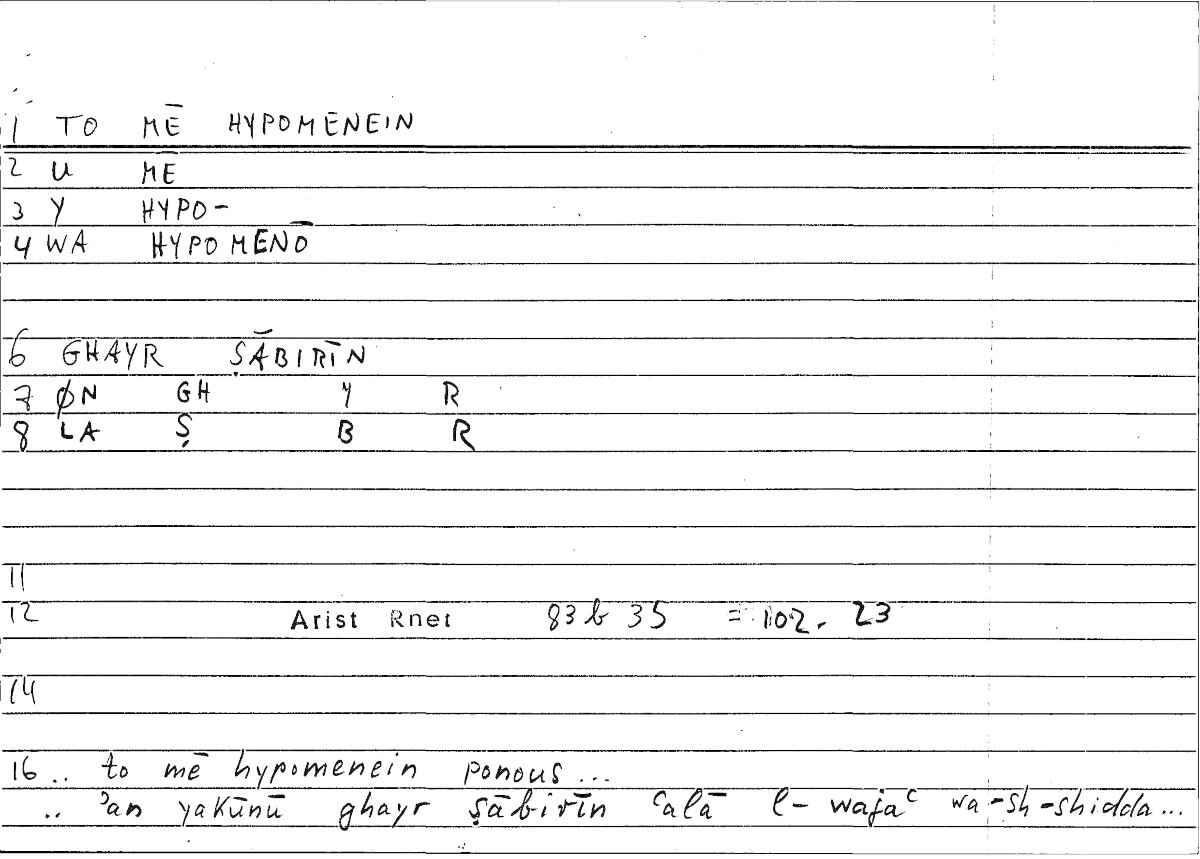 1 TO MĒ HYPOMENEIN
2 U MĒ
3 Y HYPO-
4 WA HYPOMENŌ
6 GHAYR ṢĀBIRĪN
7 ØN GH Y R
8 LA Ṣ B R
11
12 Arist Rhet 83b 35 = 102, 23
14
16 .. to mē hypomenein ponous ...
.. ʾan yakūnū ghayr ṣābirīn ʿalā l- wajaʿ wa-sh-shidda ...